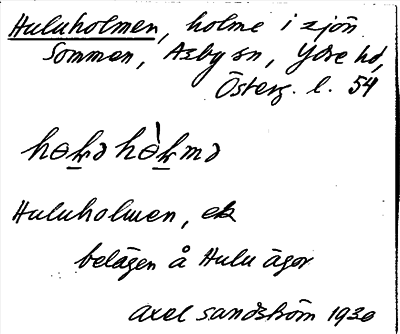 Huluholmen, holme i sjön
Sommen, Asby sn, Ydre hd,
Österg. l. 54
Huluholmen, ek
belägen å Hulu ägor
Axel Sandström 1930